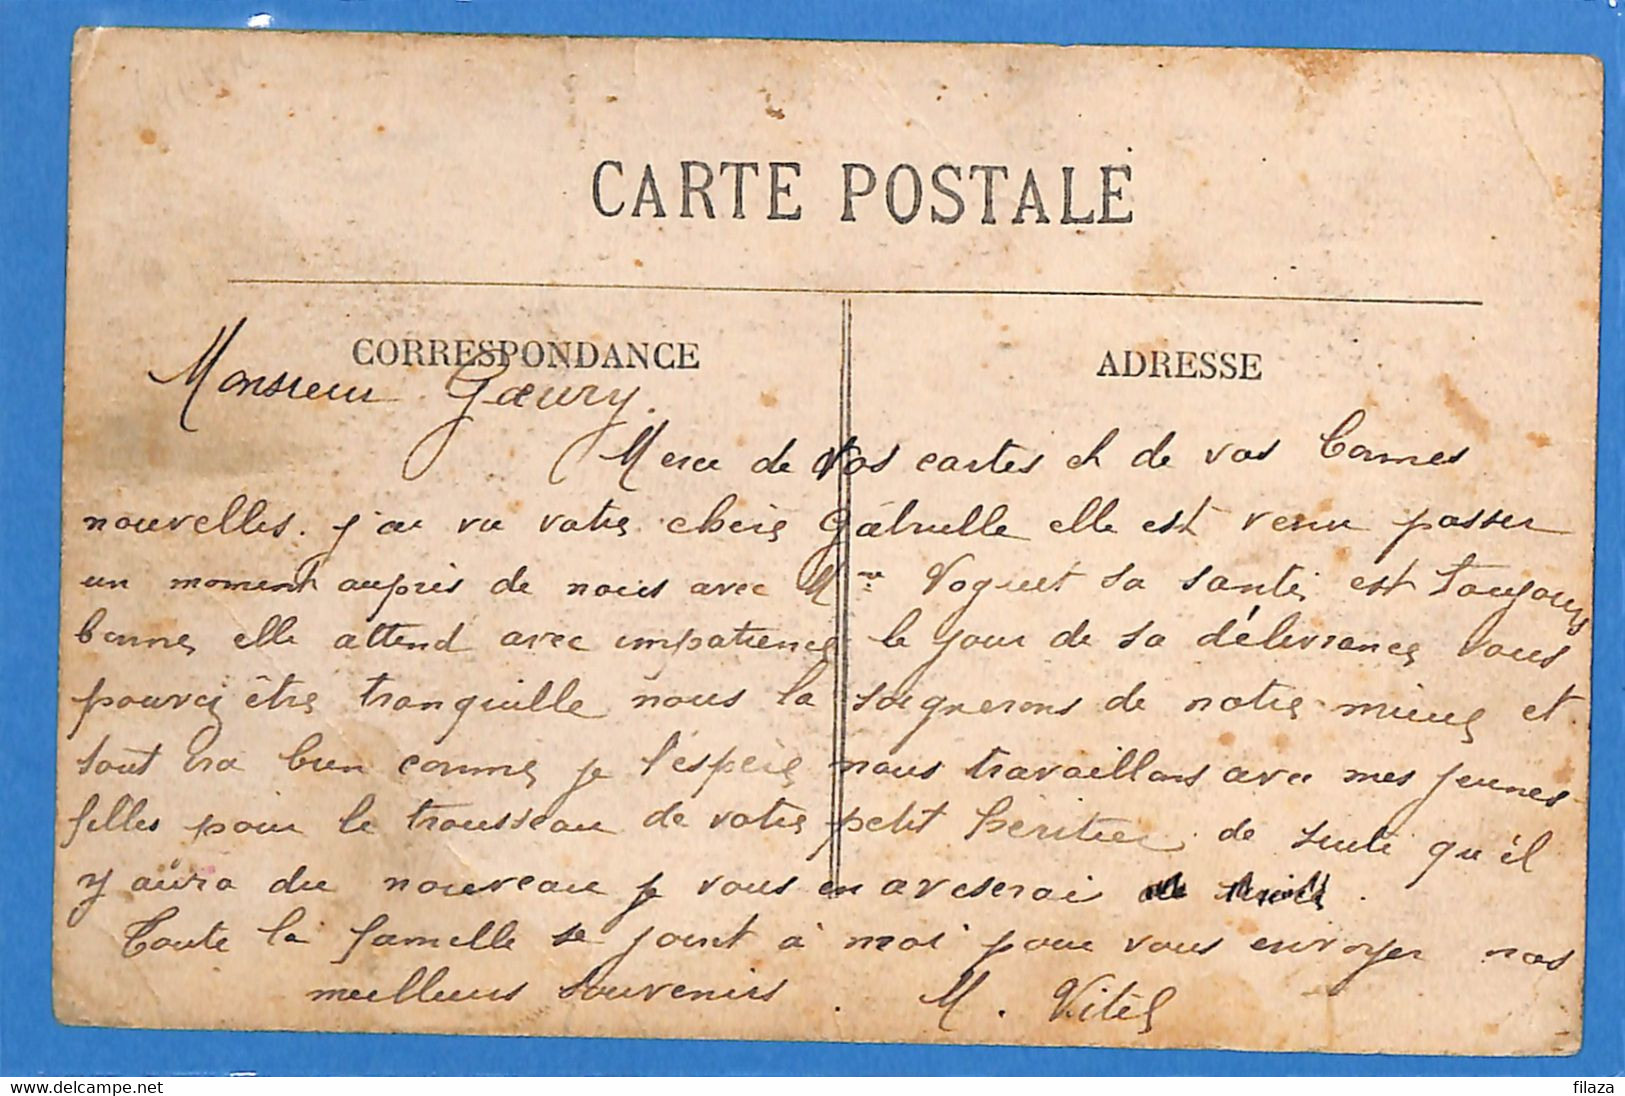 CARTE POSTALE
CORRESPONDANCE
ADRESSE
Monsieur Gœury.
Merci de vos cartes et de vos bonnes
nouvelles. j'ai vu votre chère Gabrielle elle est venu passer
un moment auprès de nous avec Mme Voguet sa santé est toujours
bonne, elle attend avec impatience le jour de sa délivrance vous
pouvez être tranquille nous la soignerons de notre mieux et
tout ira bien comme je l'espère nous travaillons avec mes jeunes
filles pour le trousseau de votre petit héritier de suite qu'il
y aura du nouveau je vous en aviserai
Toute la famille se joint à moi pour vous envoyer nos
meilleurs souvenirs. M. Vitel
www.delcampe.net
filaza